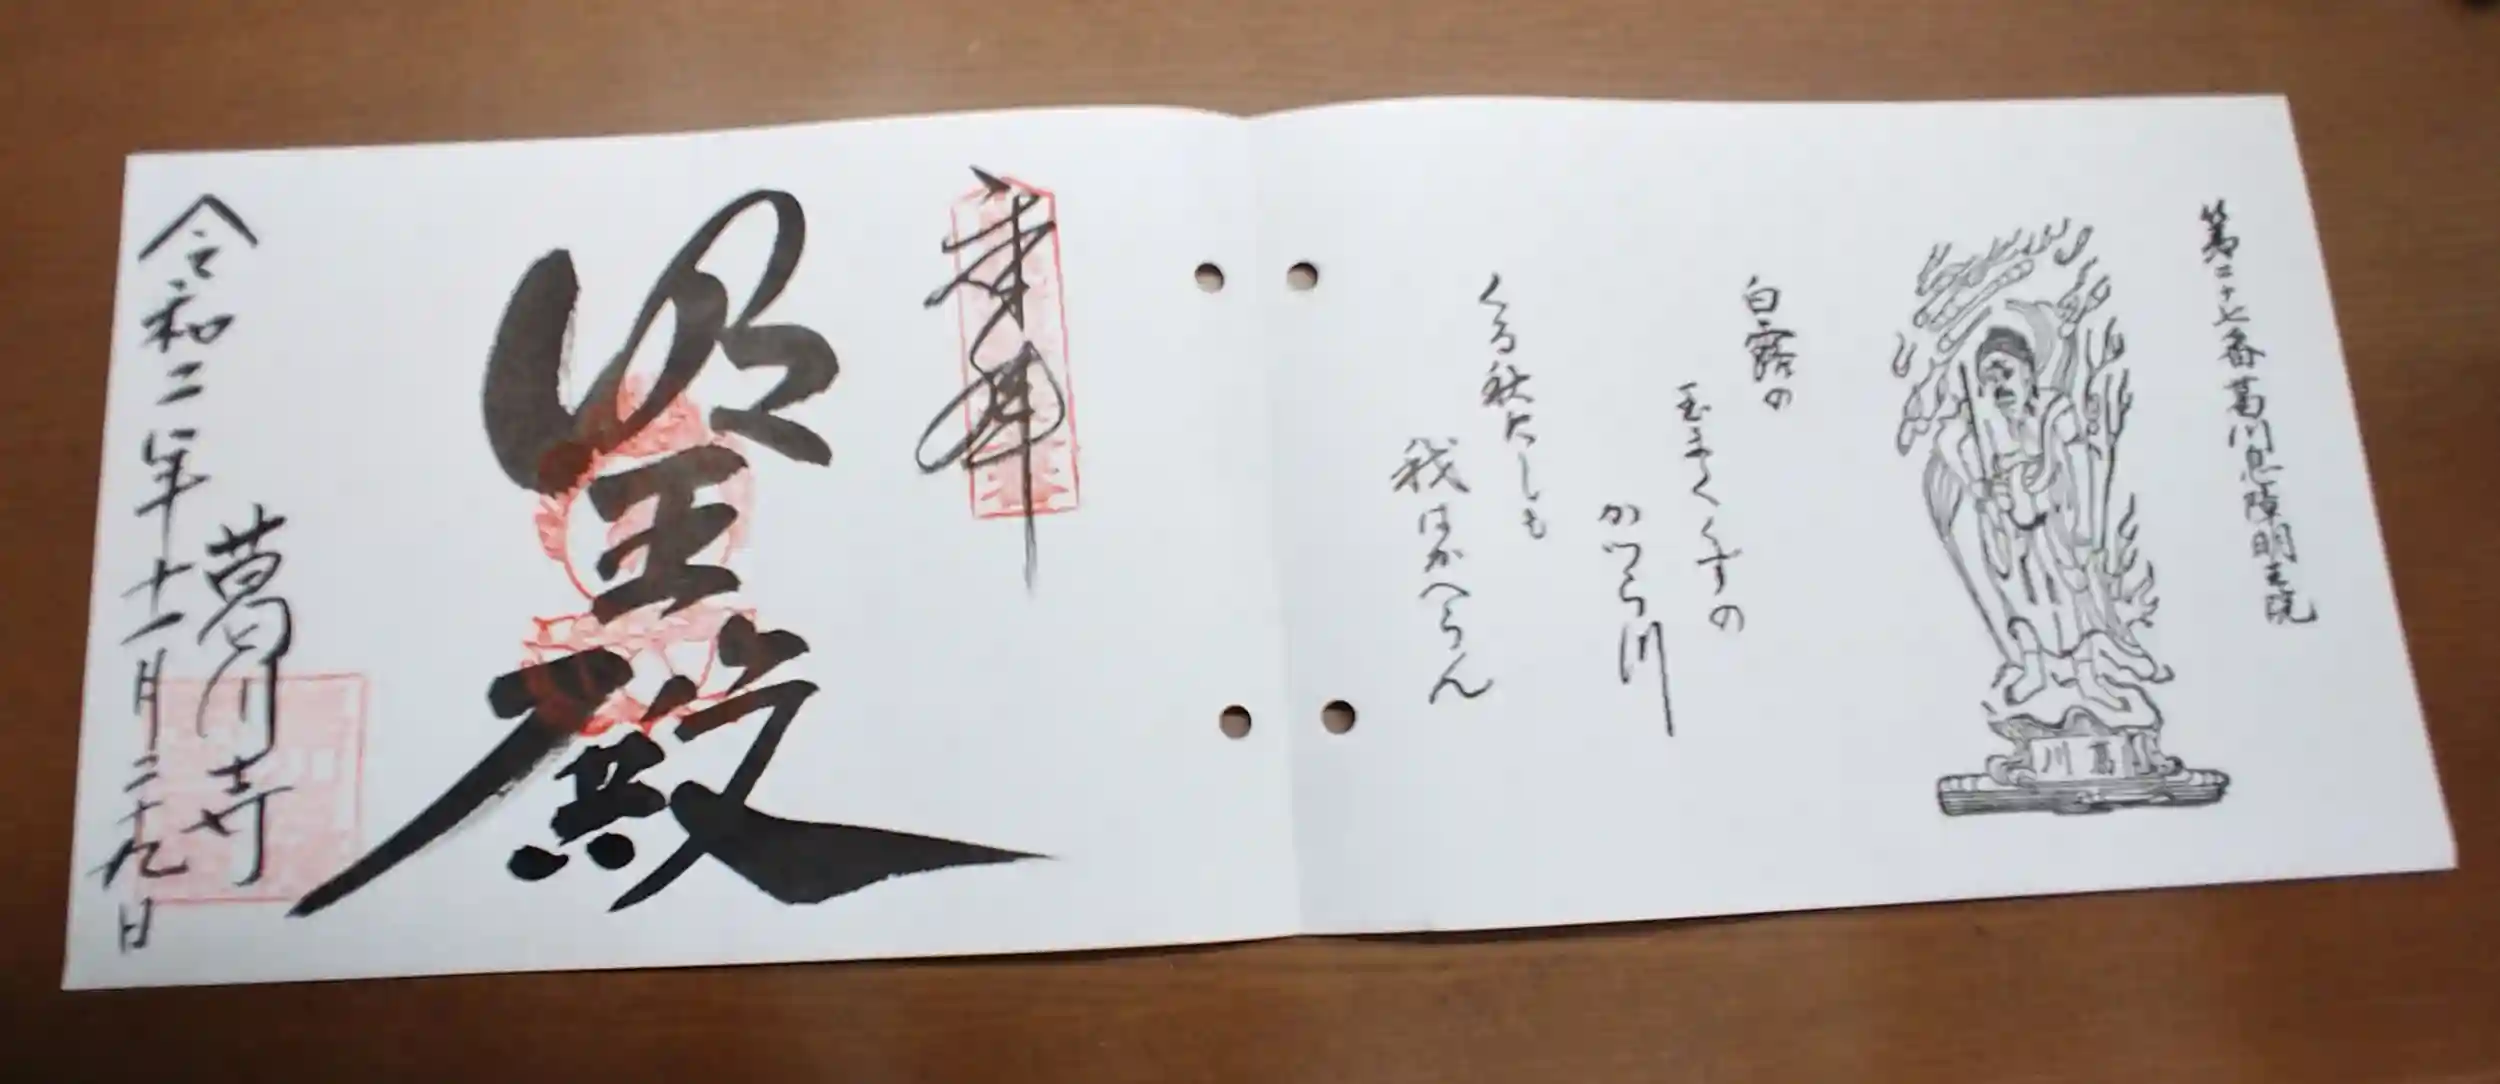 第二十七番葛川息障明王院
葛川
白露の
玉まくくずの
かつら川
くる秋にしも
我はかへらん
奉拝
明王殿
葛川寺
令和二年十一月二十九日